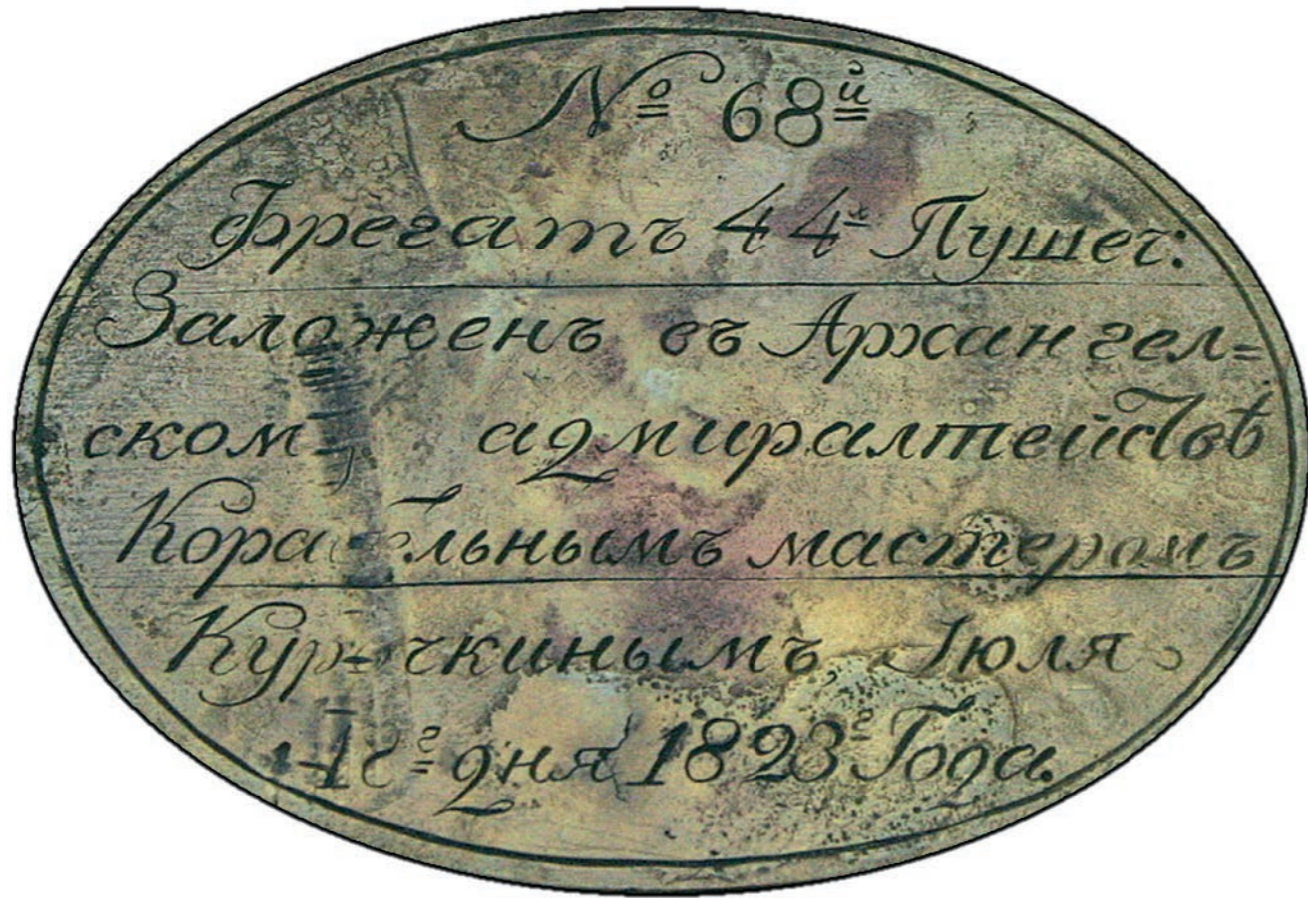 № 68й
Фрегатъ 44х Пушеч:
Заложенъ въ Архангел=
ском адмиралтействѣ
Корабельнымъ мастеромъ
Курочкинымъ Iюля
дня 1823г Года.